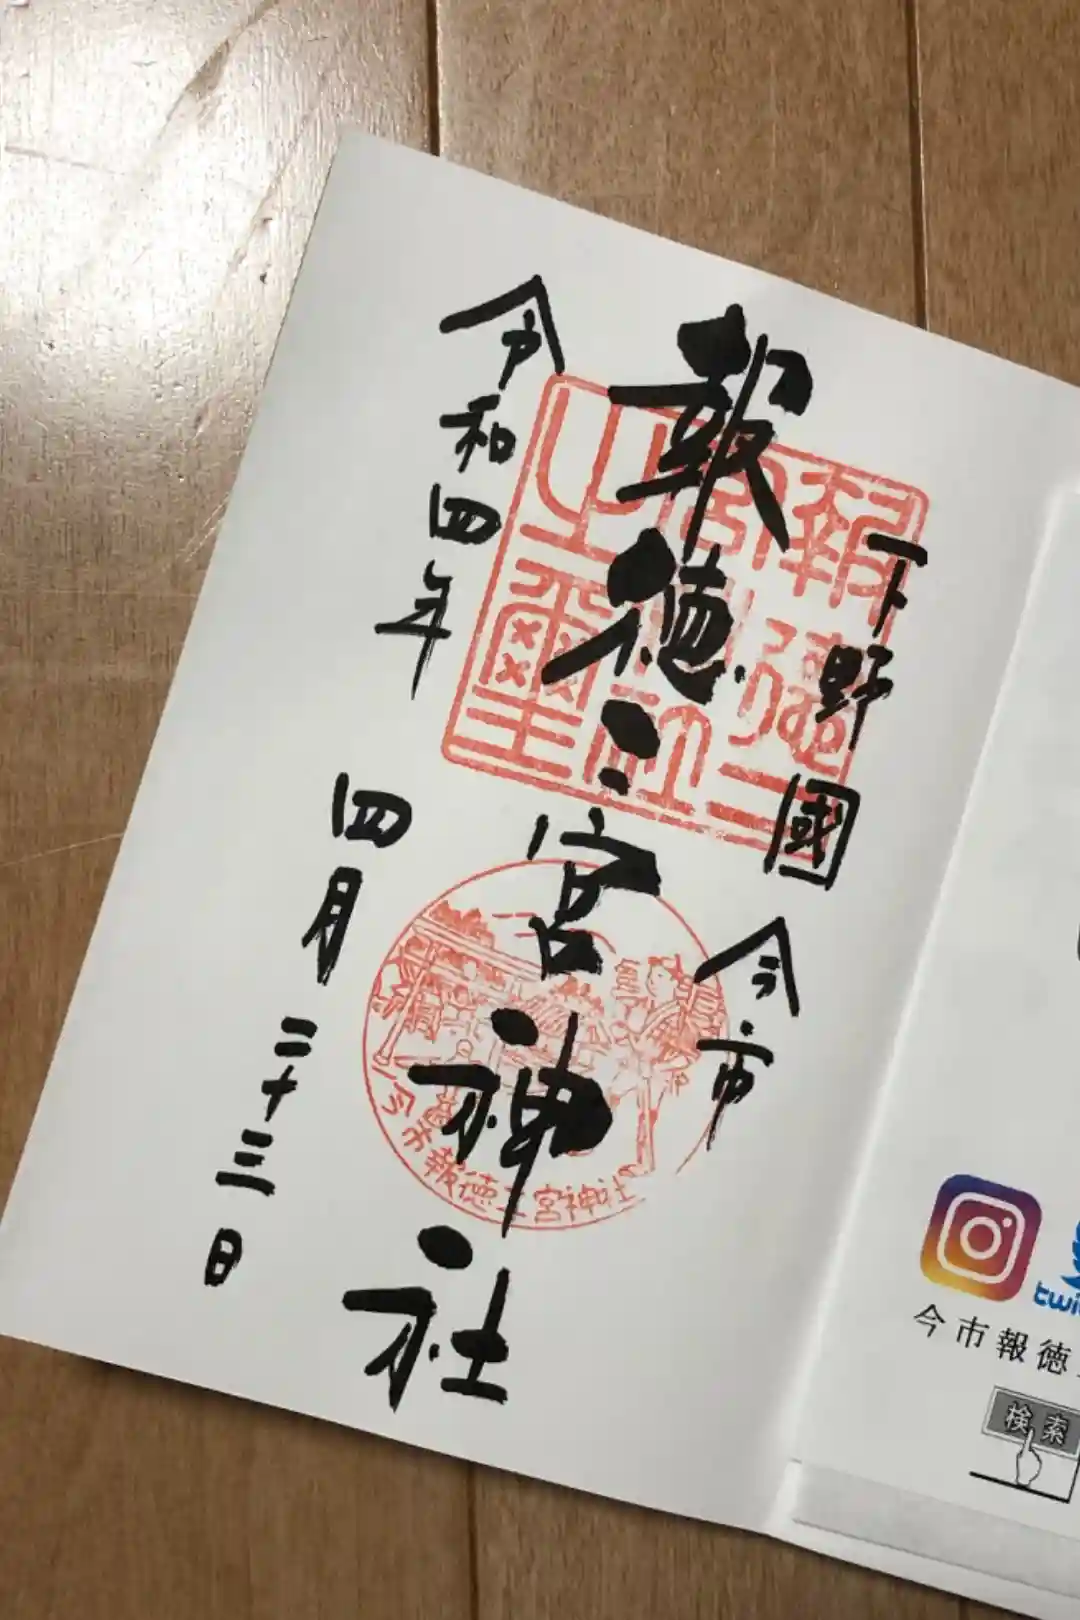 下野國 今市
報徳二宮神社
令和四年 四月二十三日
報徳二
宮神社
之璽
今市報徳二宮神社
今市報徳
検索